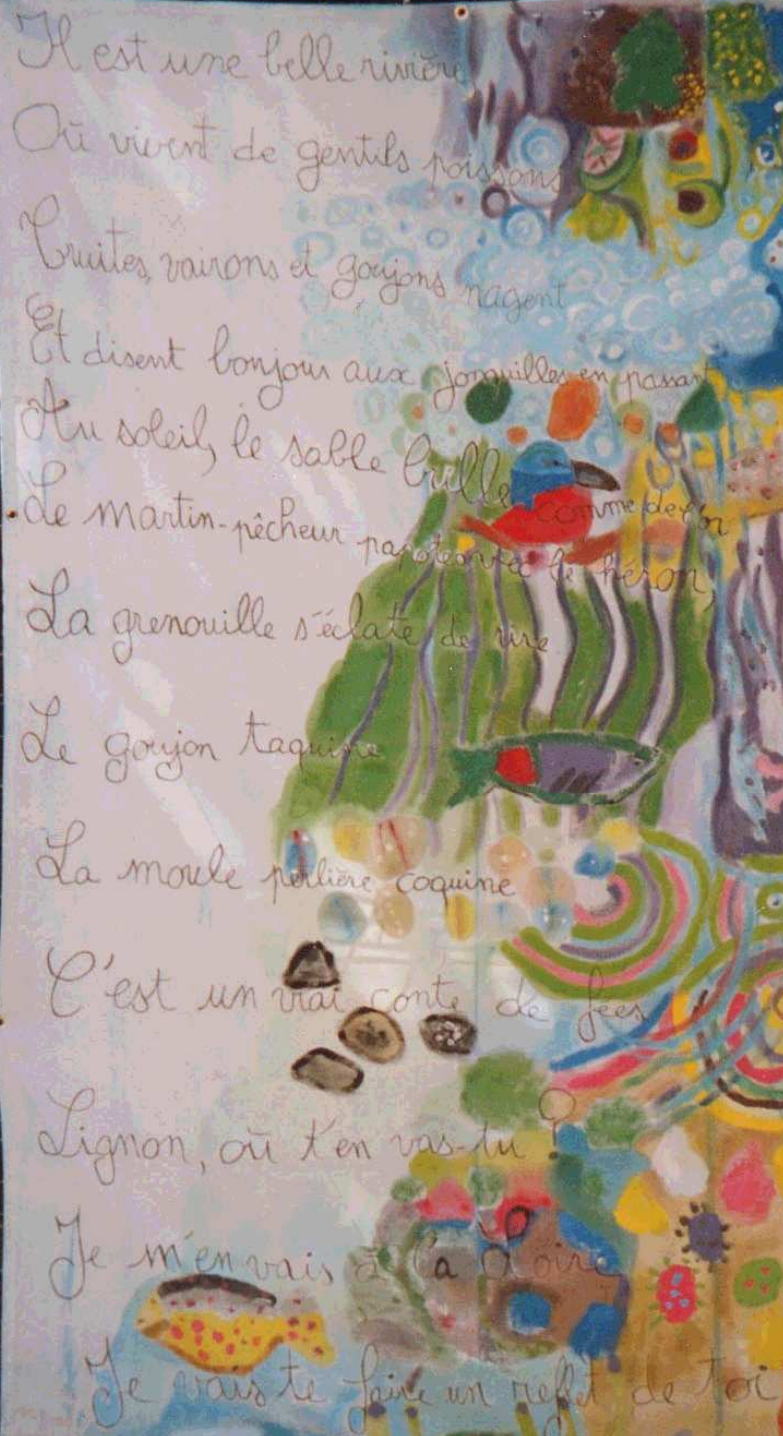 Il est une belle rivière
Où vivent de gentils poissons
Truites, vairons et goujons nagent
Et disent bonjour aux jonquilles en passant
Au soleil, le sable brille comme de l'or
Le martin-pêcheur papote avec le héron,
La grenouille s'éclate de rire
Le goujon taquine
La moule perlière coquine
C'est un vrai conte de fées
Lignon, où t'en vas-tu ?
Je m'en vais à la Loire
Je vais te faire un reflet de toi